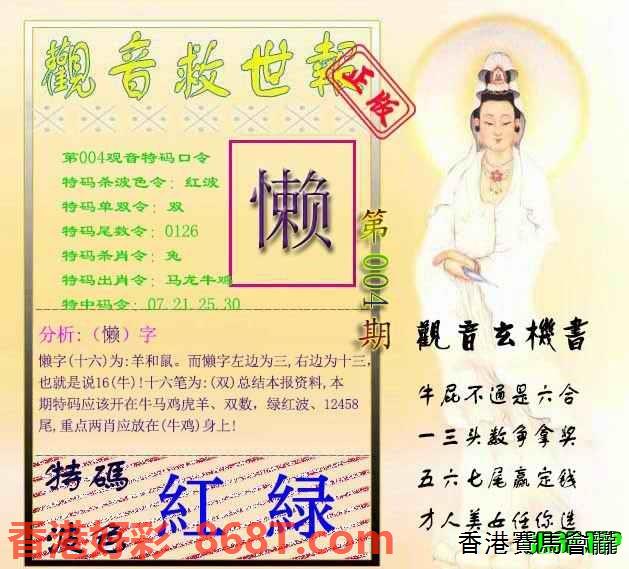 觀音救世報
正版
第004观音特码口令
特码杀波色令: 红波
特码单双令: 双
特码尾数令: 0126
特码杀肖令: 兔
特码出肖令: 马龙牛鸡
特中码令: 07.21.25.30
懒
第004期
分析:（懒）字
懒字(十六)为:羊和鼠。而懒字左边为三,右边为十三,
也就是说16(牛)!十六笔为:(双)总结本报资料,本
期特码应该开在牛马鸡虎羊、双数，绿红波、12458
尾,重点两肖应放在(牛鸡)身上!
特碼
波色
紅 绿
香港好彩 8681.com
觀音玄機書
牛屁不通是六合
一三头数争拿奖
五六七尾赢定钱
才人美女任你选
香港賽馬會